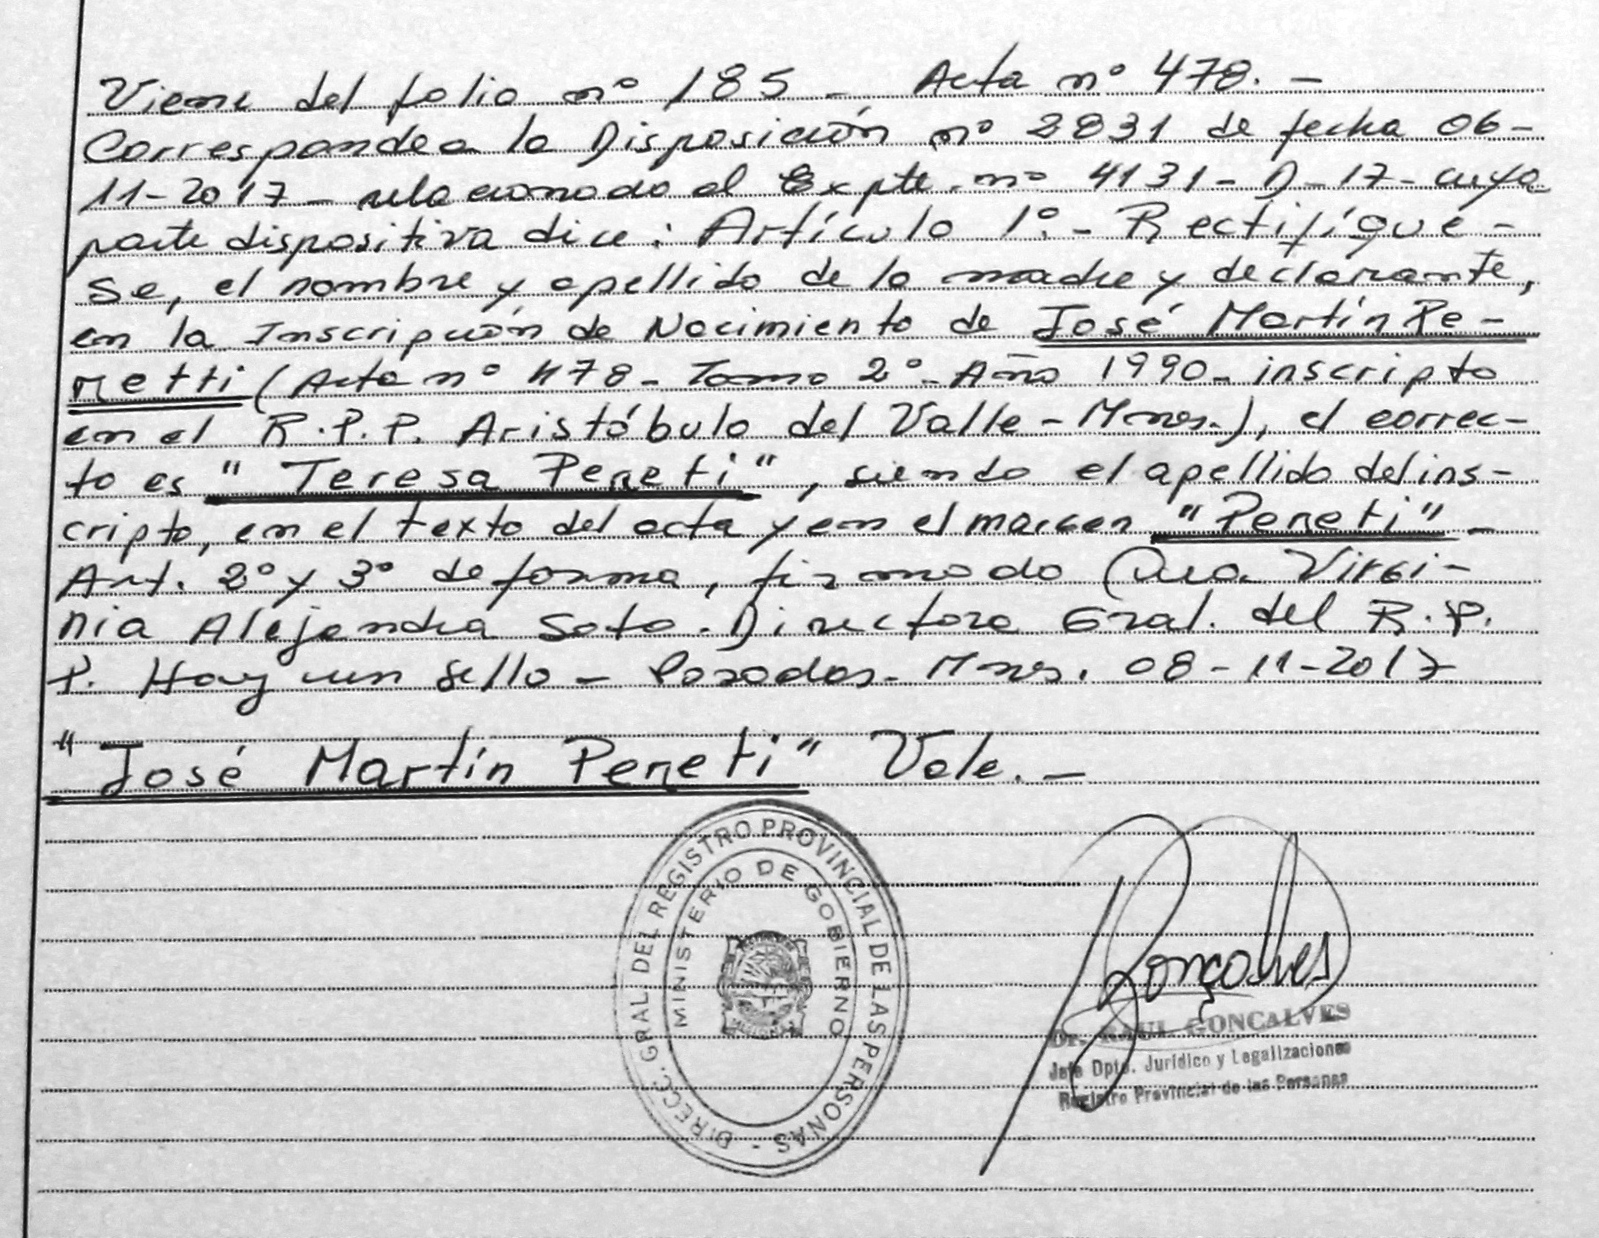 Viene del folio nº 185 - Acta nº 478. -
Corresponde a la Disposición nº 2831 de fecha 06-
11-2017 - relacionado al Expte. nº 4131 - D - 17 - cuya
parte dispositiva dice: Artículo 1º. - Rectifíque-
se, el nombre y apellido de la madre y declarante,
en la Inscripción de Nacimiento de José Martín Pe-
retti (Acta nº 478 - Tomo 2º - Año 1990 - inscripto
en el R.P.P. Aristóbulo del Valle - Mnes.), el correc-
to es "Teresa Pereti", siendo el apellido del ins-
cripto, en el texto del acta y en el margen "Pereti" -
Art. 2º y 3º de forma, firmado Dra. Virgi-
nia Alejandra Soto. Directora Gral. del R.P.
P. Hay un sello - Posadas - Mnes. 08 - 11 - 2017
"José Martín Pereti" Vale. -
DIRECC. GRAL. DEL REGISTRO PROVINCIAL DE LAS PERSONAS -
MINISTERIO DE GOBIERNO
MISIONES
Gonçalves
Dr. RAUL GONCALVES
Jefe Dpto. Jurídico y Legalizaciones
Registro Provincial de las Personas